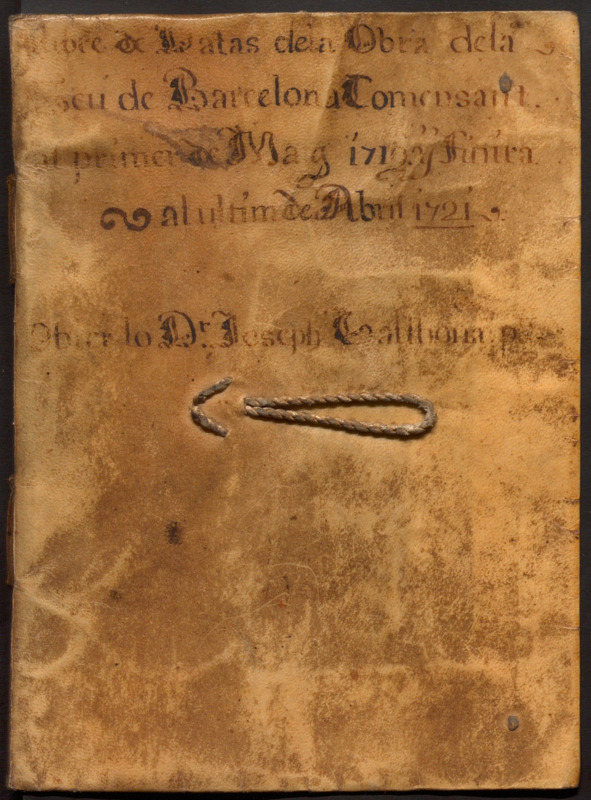 Llibre de Datas dela Obra dela
Seu de Barcelona Comensant
al primer de Maig 1719 y Finira
al ultim de Abril 1721
Obrer lo Dr. Joseph